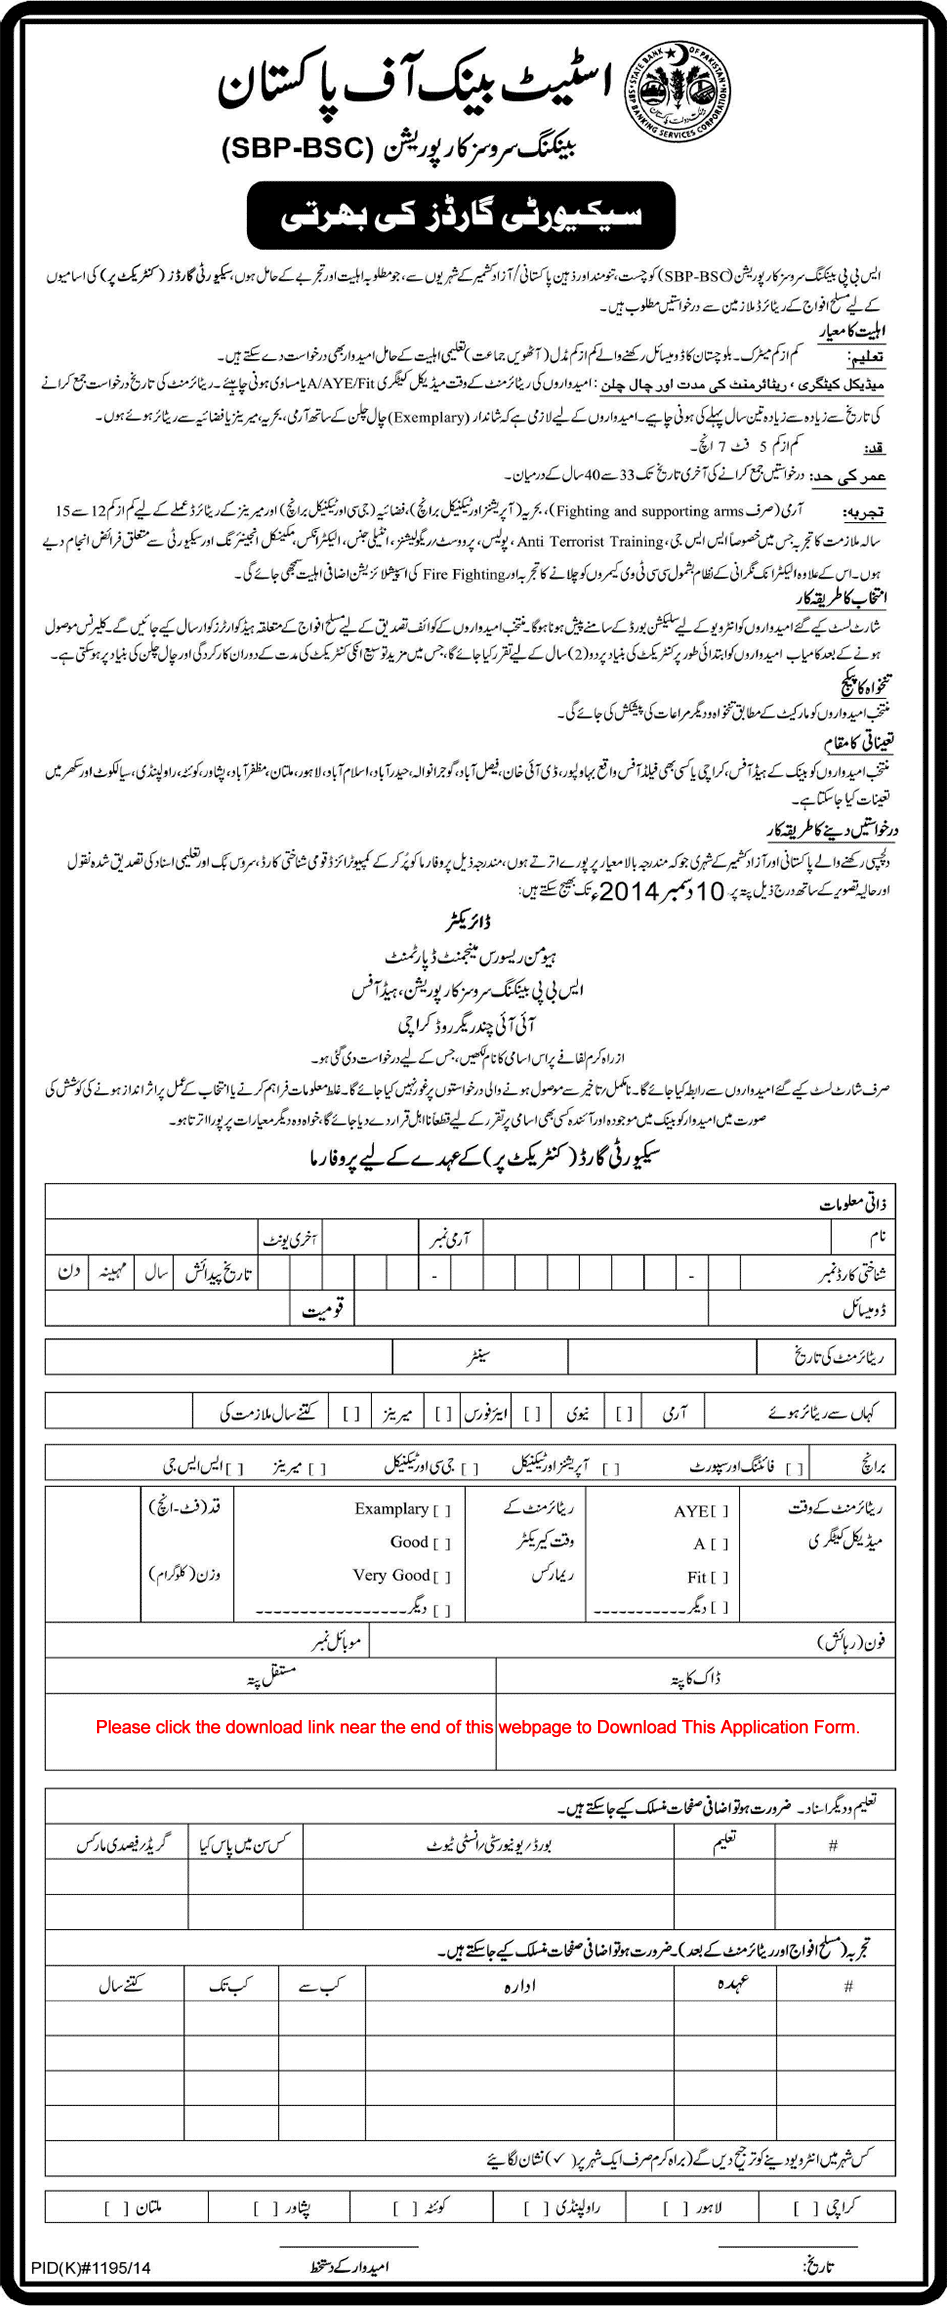 STATE BANK OF PAKISTAN
SBP BANKING SERVICES CORPORATION
اسٹیٹ بینک آف پاکستان
بینکنگ سروسز کارپوریشن (SBP-BSC)
سیکیورٹی گارڈز کی بھرتی
ایس بی پی بینکنگ سروسز کارپوریشن (SBP-BSC) کو چست، تنومند اور ذہین پاکستانی/آزاد کشمیر کے شہریوں سے، جو مطلوبہ اہلیت اور تجربے کے حامل ہوں، سیکیورٹی گارڈز (کنٹریکٹ پر) کی اسامیوں
کے لیے مسلح افواج کے ریٹائرڈ ملازمین سے درخواستیں مطلوب ہیں۔
اہلیت کا معیار
تعلیم: کم از کم میٹرک۔ بلوچستان کا ڈومیسائل رکھنے والے کم از کم مڈل (آٹھویں جماعت) تعلیمی اہلیت کے حامل امیدوار بھی درخواست دے سکتے ہیں۔
میڈیکل کیٹگری، ریٹائرمنٹ کی مدت اور چال چلن: امیدواروں کی ریٹائرمنٹ کے وقت میڈیکل کیٹگری A/AYE/Fit یا مساوی ہونی چاہیئے۔ ریٹائرمنٹ کی تاریخ درخواست جمع کرانے
کی تاریخ سے زیادہ سے زیادہ تین سال پہلے کی ہونی چاہیے۔ امیدواروں کے لیے لازمی ہے کہ شاندار (Exemplary) چال چلن کے ساتھ آرمی، بحریہ، میرینز یا فضائیہ سے ریٹائر ہوئے ہوں۔
قد: کم از کم 5 فٹ 7 انچ۔
عمر کی حد: درخواستیں جمع کرانے کی آخری تاریخ تک 33 سے 40 سال کے درمیان۔
تجربہ: آرمی (صرف Fighting and supporting arms)، بحریہ (آپریشنز اور ٹیکنیکل برانچ)، فضائیہ (جی سی اور ٹیکنیکل برانچ) اور میرینز کے ریٹائرڈ عملے کے لیے کم از کم 12 سے 15
سالہ ملازمت کا تجربہ جس میں خصوصاً ایس ایس جی، Anti Terrorist Training، پولیس، پرووسٹ/ریگولیشنز، انٹیلی جنس، الیکٹرانکس، مکینکل انجینئرنگ اور سیکیورٹی سے متعلق فرائض انجام دیے
ہوں۔ اس کے علاوہ الیکٹرانک نگرانی کے نظام بشمول سی سی ٹی وی کیمروں کو چلانے کا تجربہ اور Fire Fighting کی اسپیشلائزیشن اضافی اہلیت سمجھی جائے گی۔
انتخاب کا طریقہ کار
شارٹ لسٹ کیے گئے امیدواروں کو انٹرویو کے لیے سلیکشن بورڈ کے سامنے پیش ہونا ہوگا۔ منتخب امیدواروں کے کوائف تصدیق کے لیے مسلح افواج کے متعلقہ ہیڈ کوارٹرز کو ارسال کیے جائیں گے۔ کلیرنس موصول
ہونے کے بعد کامیاب امیدواروں کو ابتدائی طور پر کنٹریکٹ کی بنیاد پر دو (2) سال کے لیے تقرر کیا جائے گا، جس میں مزید توسیع انکی کنٹریکٹ کی مدت کے دوران کارکردگی اور چال چلن کی بنیاد پر ہو سکتی ہے۔
تنخواہ کا پیکج
منتخب امیدواروں کو مارکیٹ کے مطابق تنخواہ و دیگر مراعات کی پیشکش کی جائے گی۔
تعیناتی کا مقام
منتخب امیدواروں کو بینک کے ہیڈ آفس، کراچی یا کسی بھی فیلڈ آفس واقع بہاولپور، ڈی آئی خان، فیصل آباد، گوجرانوالہ، حیدرآباد، اسلام آباد، لاہور، ملتان، مظفرآباد، پشاور، کوئٹہ، راولپنڈی، سیالکوٹ اور سکھر میں
تعینات کیا جا سکتا ہے۔
درخواستیں دینے کا طریقہ کار
دلچسپی رکھنے والے پاکستانی اور آزاد کشمیر کے شہری جو کہ مندرجہ بالا معیار پر پورے اترتے ہوں، مندرجہ ذیل پروفارما کو پُر کر کے کمپیوٹرائزڈ قومی شناختی کارڈ، سروس بُک اور تعلیمی اسناد کی تصدیق شدہ نقول
اور حالیہ تصویر کے ساتھ درج ذیل پتہ پر 10 دسمبر 2014ء تک بھیج سکتے ہیں:
ڈائریکٹر
ہیومن ریسورس مینجمنٹ ڈپارٹمنٹ
ایس بی پی بینکنگ سروسز کارپوریشن، ہیڈ آفس
آئی آئی چندریگر روڈ کراچی
ازراہ کرم لفافے پر اس اسامی کا نام لکھیں، جس کے لیے درخواست دی گئی ہو۔
صرف شارٹ لسٹ کیے گئے امیدواروں سے رابطہ کیا جائے گا۔ نامکمل/تاخیر سے موصول ہونے والی درخواستوں پر غور نہیں کیا جائے گا۔ غلط معلومات فراہم کرنے یا انتخاب کے عمل پر اثر انداز ہونے کی کوشش کی
صورت میں امیدوار کو بینک میں موجودہ اور آئندہ کسی بھی اسامی پر تقرر کے لیے قطعاً نااہل قرار دے دیا جائے گا، خواہ وہ دیگر معیارات پر پورا اترتا ہو۔
سیکیورٹی گارڈ (کنٹریکٹ پر) کے عہدے کے لیے پروفارما
ذاتی معلومات
نام آرمی نمبر آخری یونٹ
شناختی کارڈ نمبر - - تاریخ پیدائش سال مہینہ دن
ڈومیسائل قومیت
ریٹائرمنٹ کی تاریخ سینٹر
کہاں سے ریٹائر ہوئے آرمی [ ] نیوی [ ] ایئرفورس [ ] میرینز [ ] کتنے سال ملازمت کی
برانچ [ ] فائٹنگ اور سپورٹ [ ] آپریشنز اور ٹیکنیکل [ ] جی سی اور ٹیکنیکل [ ] میرینز [ ] ایس ایس جی
ریٹائرمنٹ کے وقت AYE [ ] ریٹائرمنٹ کے Examplary [ ] قد (فٹ-انچ)
میڈیکل کیٹگری A [ ] وقت کیریکٹر Good [ ]
Fit [ ] ریمارکس Very Good [ ] وزن (کلوگرام)
[ ] دیگر----------- [ ] دیگر------------------
فون (رہائش) موبائل نمبر
ڈاک کا پتہ مستقل پتہ
Please click the download link near the end of this webpage to Download This Application Form.
تعلیم و دیگر اسناد۔ ضرورت ہو تو اضافی صفحات منسلک کیے جا سکتے ہیں۔
# تعلیم بورڈ/یونیورسٹی/انسٹی ٹیوٹ کس سن میں پاس کیا گریڈ/فیصدی مارکس
تجربہ (مسلح افواج اور ریٹائرمنٹ کے بعد)۔ ضرورت ہو تو اضافی صفحات منسلک کیے جا سکتے ہیں۔
# عہدہ ادارہ کب سے کب تک کتنے سال
کس شہر میں انٹرویو دینے کو ترجیح دیں گے (براہ کرم صرف ایک شہر پر (✓) نشان لگائیے
کراچی [ ] لاہور [ ] راولپنڈی [ ] کوئٹہ [ ] پشاور [ ] ملتان [ ]
تاریخ: امیدوار کے دستخط
PID(K)#1195/14